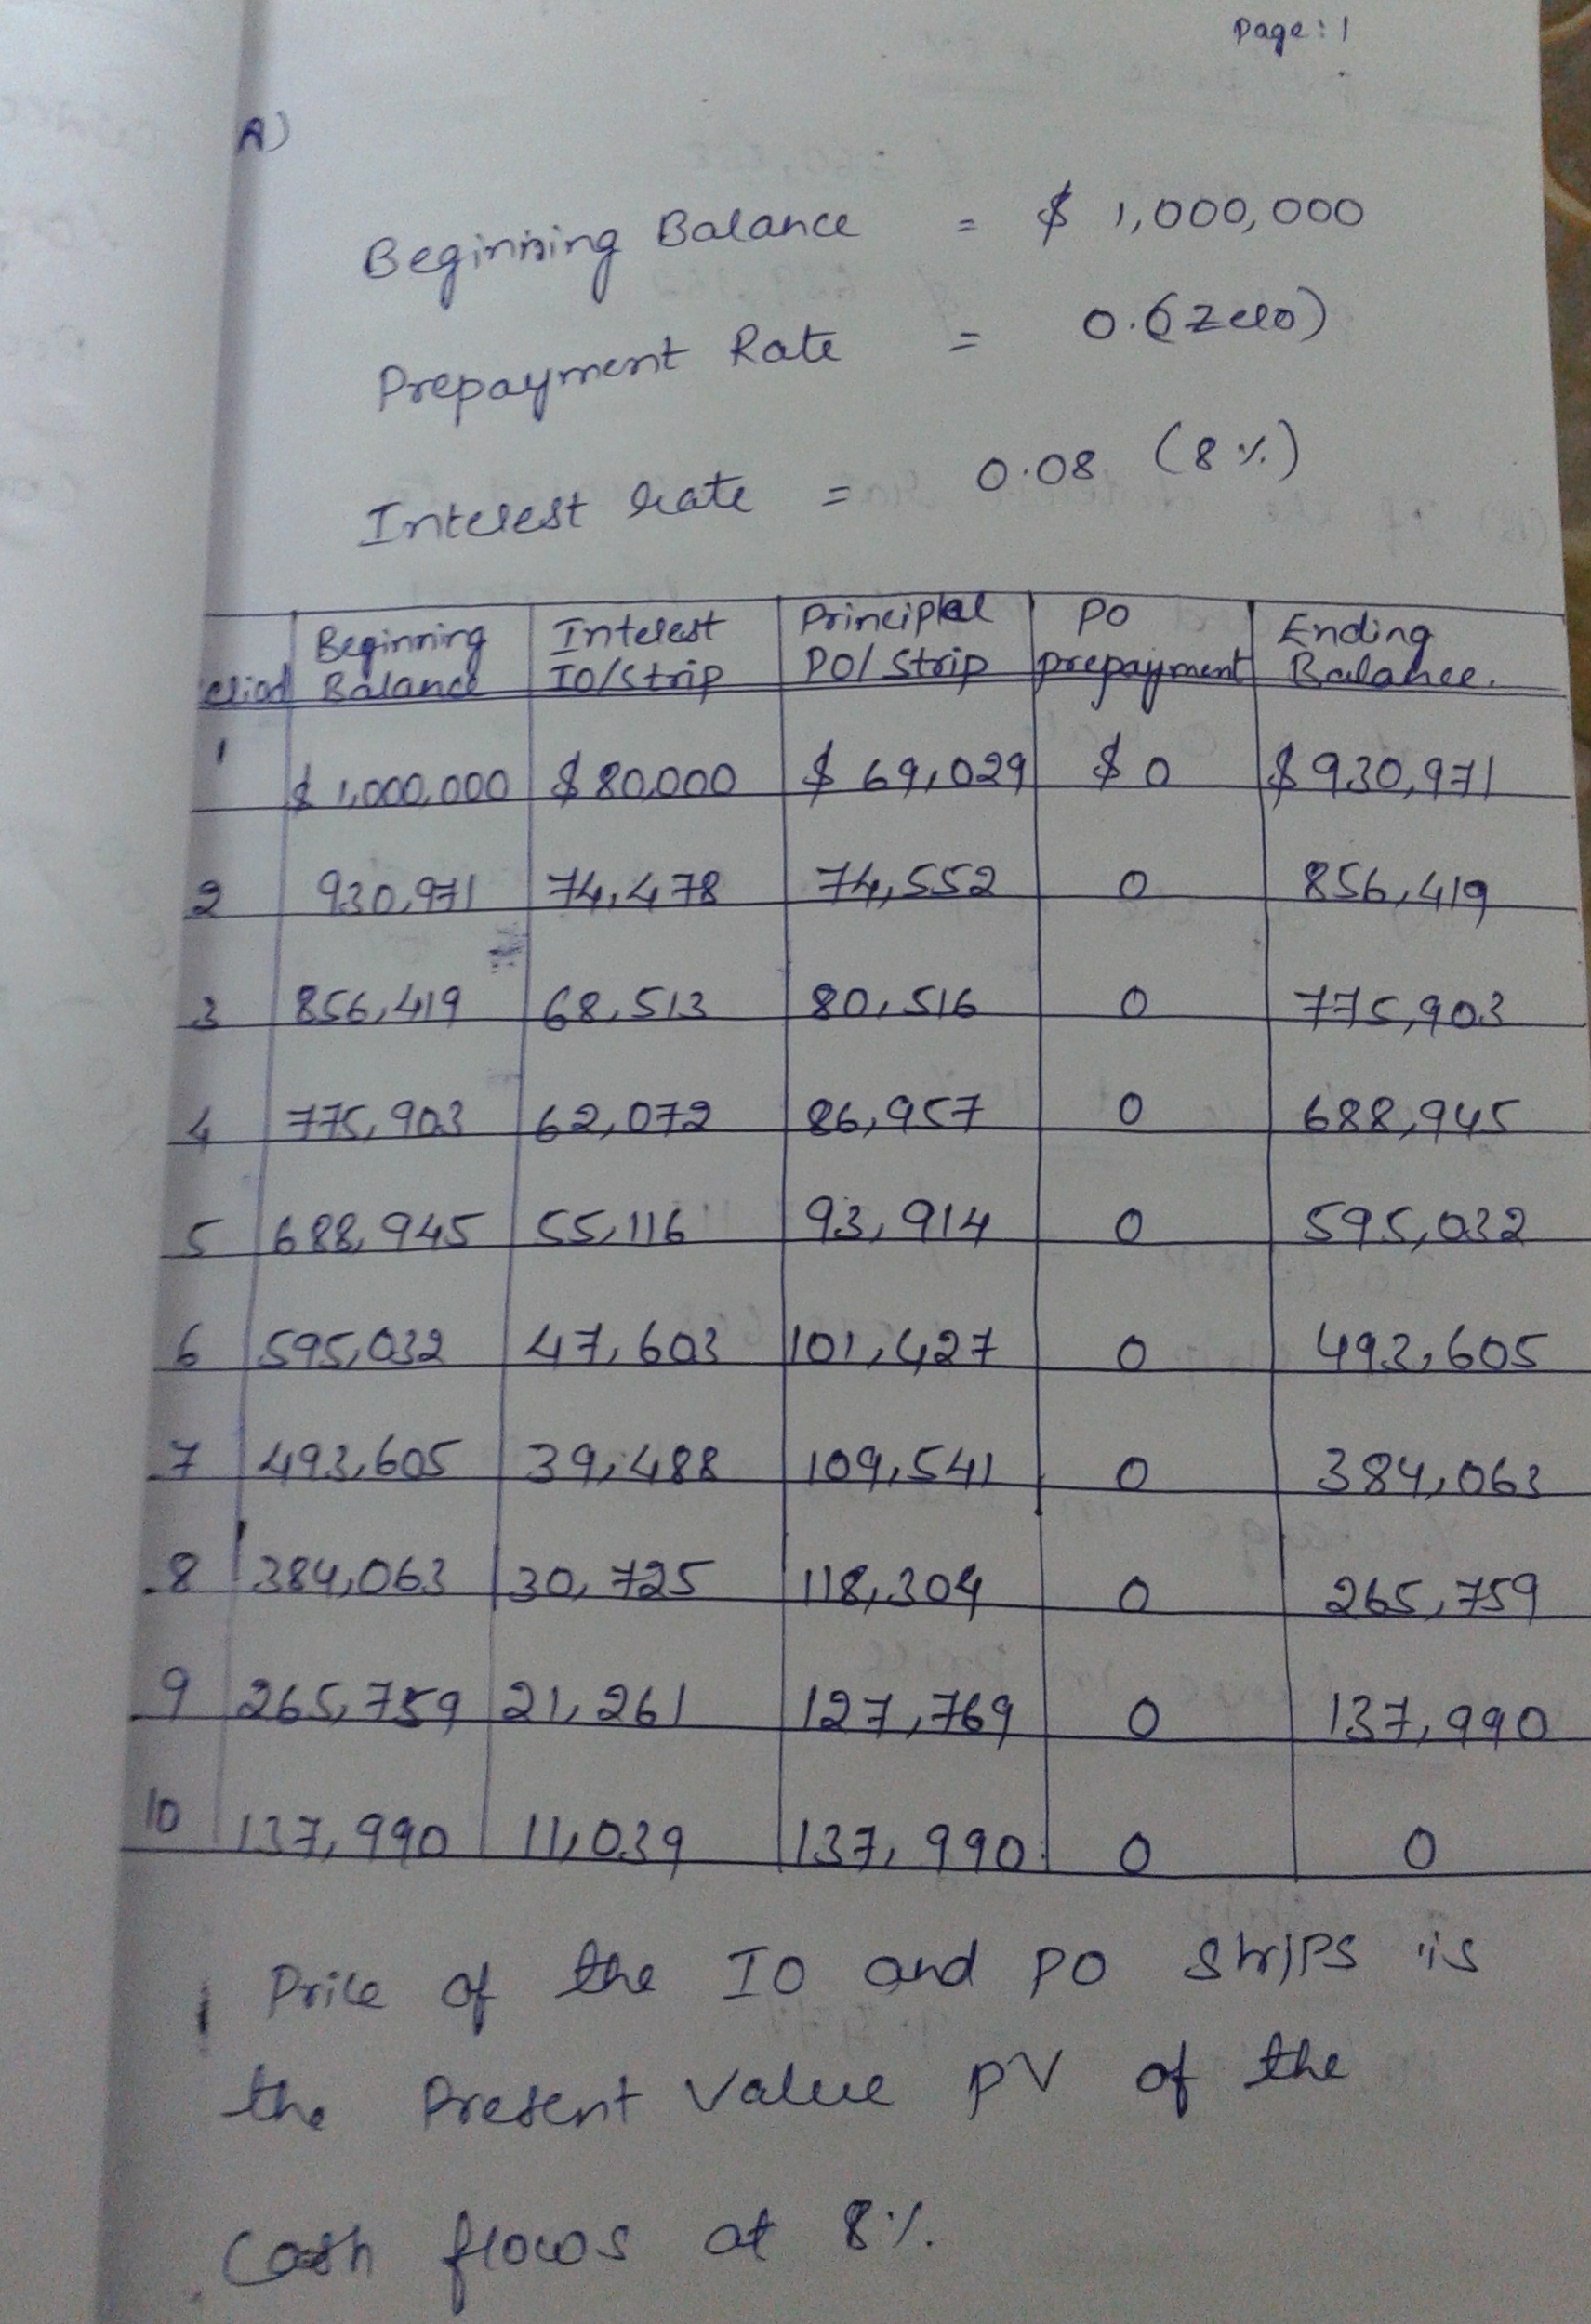 Page: 1
A)
Beginning Balance = $ 1,000,000
Prepayment Rate = 0.0(Zero)
Interest Rate = 0.08 (8%)
eriod Beginning Balance Interest IO/Strip Principal PO/Strip PO prepayment Ending Balance.
1 $ 1,000,000 $ 80,000 $ 69,029 $ 0 $ 930,971
2 930,971 74,478 74,552 0 856,419
3 856,419 68,513 80,516 0 775,903
4 775,903 62,072 86,957 0 688,945
5 688,945 55,116 93,914 0 595,032
6 595,032 47,603 101,427 0 493,605
7 493,605 39,488 109,541 0 384,063
8 384,063 30,725 118,304 0 265,759
9 265,759 21,261 127,769 0 137,990
10 137,990 11,039 137,990 0 0
Price of the IO and PO strips is
the Present Value PV of the
Cash flows at 8%.